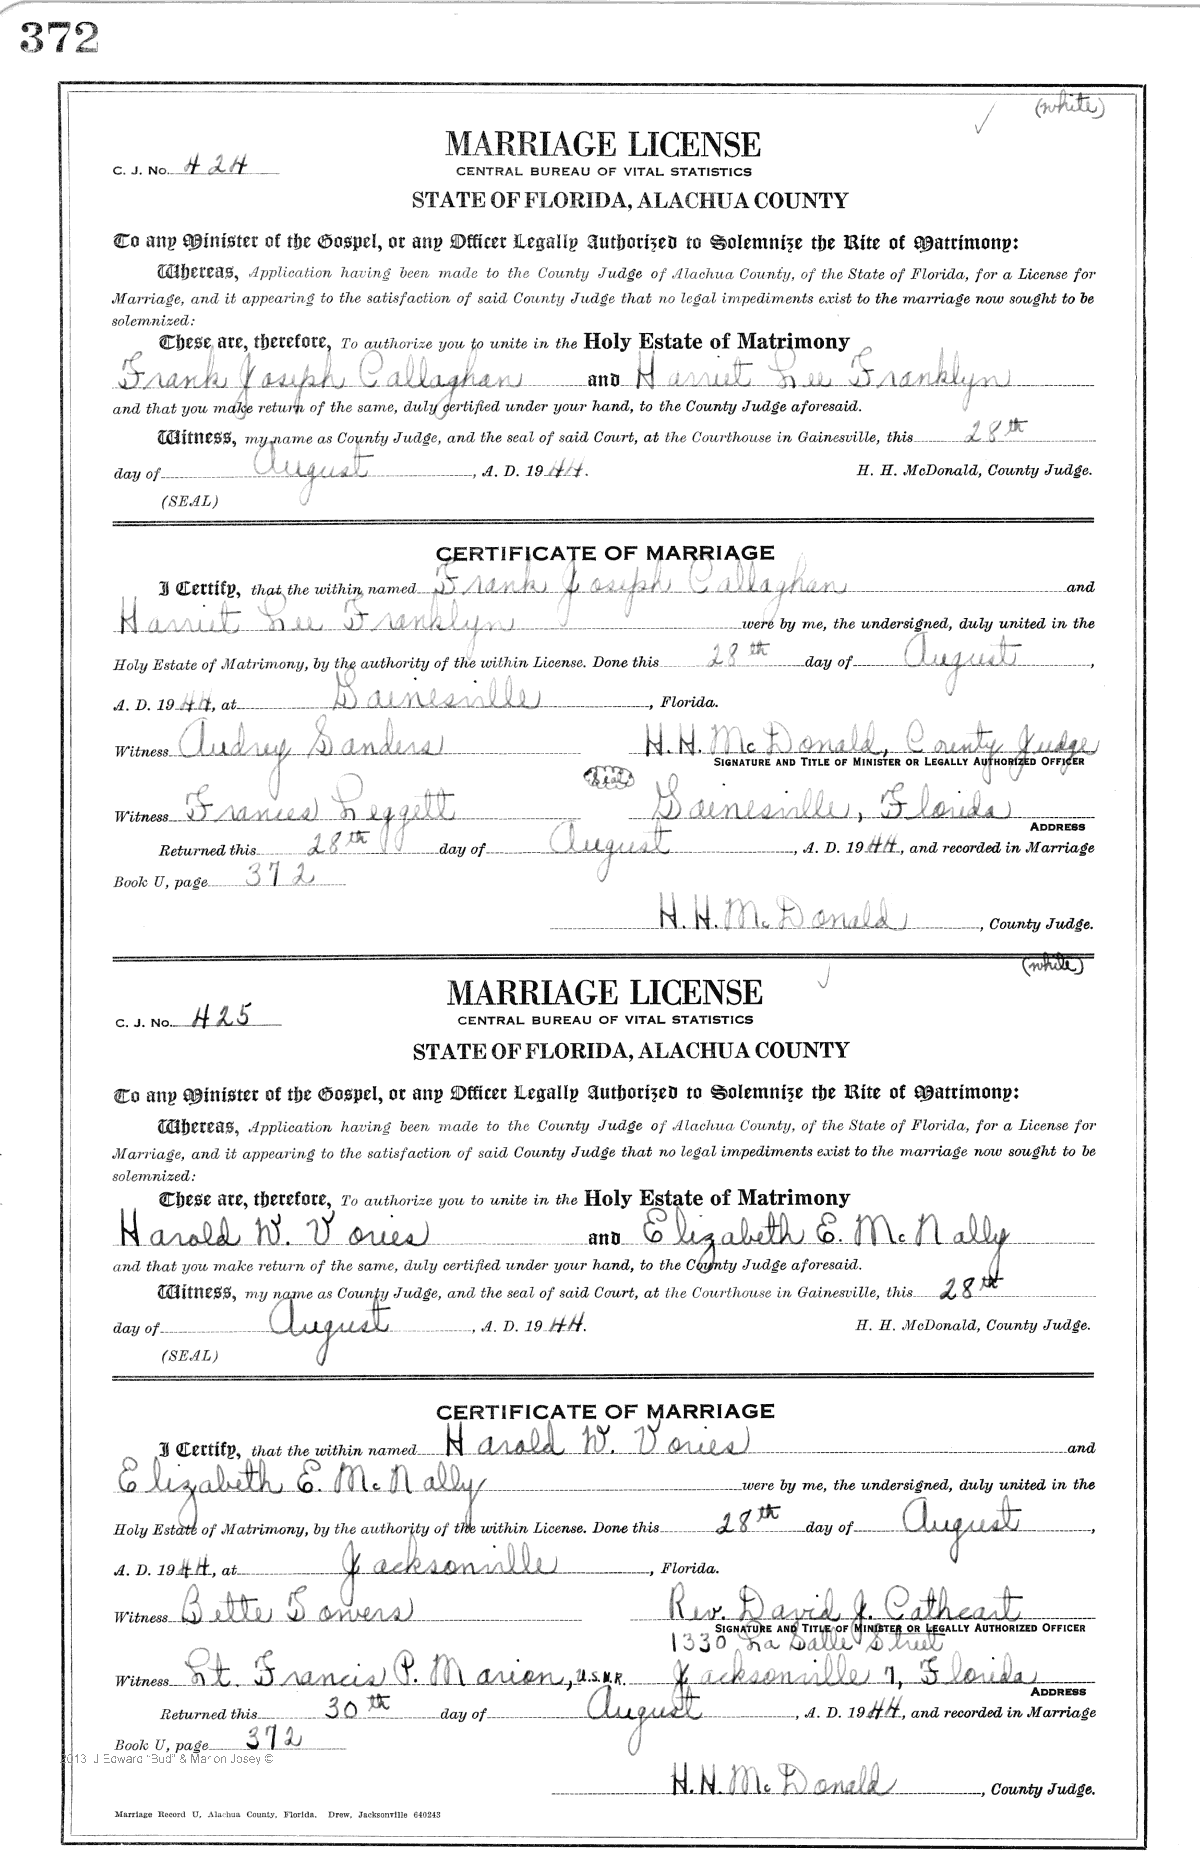 372
(white)
MARRIAGE LICENSE
C. J. No. 424
CENTRAL BUREAU OF VITAL STATISTICS
STATE OF FLORIDA, ALACHUA COUNTY
To any Minister of the Gospel, or any Officer Legally Authorized to Solemnize the Rite of Matrimony:
Whereas, Application having been made to the County Judge of Alachua County, of the State of Florida, for a License for
Marriage, and it appearing to the satisfaction of said County Judge that no legal impediments exist to the marriage now sought to be
solemnized:
These are, therefore, To authorize you to unite in the Holy Estate of Matrimony
Frank Joseph Callaghan and Harriet Lee Franklyn
and that you make return of the same, duly certified under your hand, to the County Judge aforesaid.
Witness, my name as County Judge, and the seal of said Court, at the Courthouse in Gainesville, this 28th
day of August, A. D. 1944. H. H. McDonald, County Judge.
(SEAL)
CERTIFICATE OF MARRIAGE
I Certify, that the within named Frank Joseph Callaghan and
Harriet Lee Franklyn were by me, the undersigned, duly united in the
Holy Estate of Matrimony, by the authority of the within License. Done this 28th day of August,
A. D. 1944, at Gainesville, Florida.
Witness Audrey Sanders H. H. McDonald, County Judge
SIGNATURE AND TITLE OF MINISTER OR LEGALLY AUTHORIZED OFFICER
Seal
Witness Frances Leggett Gainesville, Florida
ADDRESS
Returned this 28th day of August, A. D. 1944, and recorded in Marriage
Book U, page 372
H. H. McDonald, County Judge.
(white)
MARRIAGE LICENSE
C. J. No. 425
CENTRAL BUREAU OF VITAL STATISTICS
STATE OF FLORIDA, ALACHUA COUNTY
To any Minister of the Gospel, or any Officer Legally Authorized to Solemnize the Rite of Matrimony:
Whereas, Application having been made to the County Judge of Alachua County, of the State of Florida, for a License for
Marriage, and it appearing to the satisfaction of said County Judge that no legal impediments exist to the marriage now sought to be
solemnized:
These are, therefore, To authorize you to unite in the Holy Estate of Matrimony
Harold W. Vories and Elizabeth E. McNally
and that you make return of the same, duly certified under your hand, to the County Judge aforesaid.
Witness, my name as County Judge, and the seal of said Court, at the Courthouse in Gainesville, this 28th
day of August, A. D. 1944. H. H. McDonald, County Judge.
(SEAL)
CERTIFICATE OF MARRIAGE
I Certify, that the within named Harold W. Vories and
Elizabeth E. McNally were by me, the undersigned, duly united in the
Holy Estate of Matrimony, by the authority of the within License. Done this 28th day of August,
A. D. 1944, at Jacksonville, Florida.
Witness Bette Towers Rev. David J. Cathcart
SIGNATURE AND TITLE OF MINISTER OR LEGALLY AUTHORIZED OFFICER
1330 La Salle Street
Witness Lt. Francis P. Marion, U.S.N.R. Jacksonville 7, Florida
ADDRESS
Returned this 30th day of August, A. D. 1944, and recorded in Marriage
Book U, page 372
2013 J Edward "Bud" & Marion Josey ©
H. H. McDonald, County Judge.
Marriage Record U, Alachua County, Florida. Drew, Jacksonville 640243